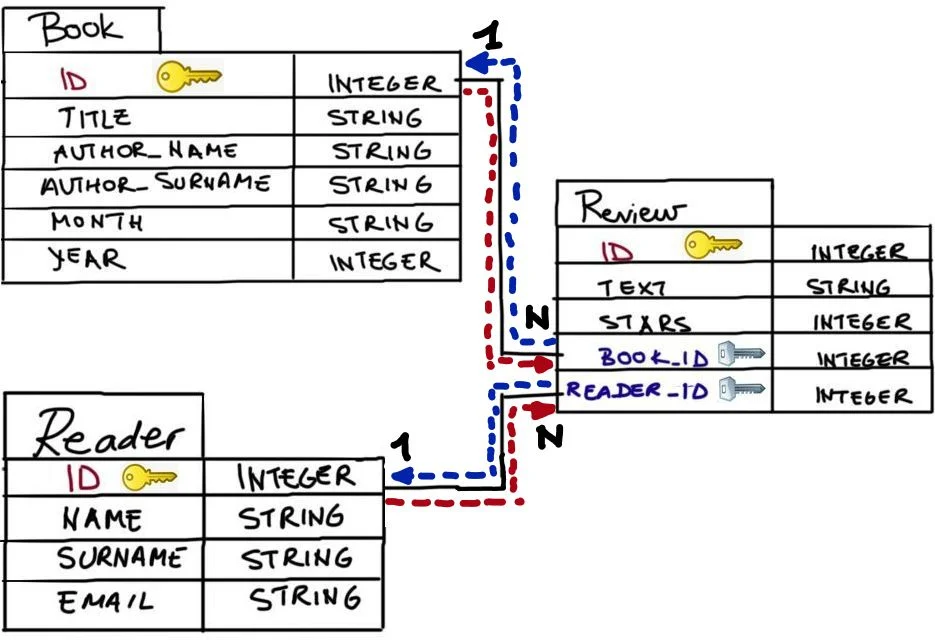 Book
ID INTEGER
TITLE STRING
AUTHOR_NAME STRING
AUTHOR_SURNAME STRING
MONTH STRING
YEAR INTEGER
1
N
Review
ID INTEGER
TEXT STRING
STARS INTEGER
BOOK_ID INTEGER
READER_ID INTEGER
1
N
Reader
ID INTEGER
NAME STRING
SURNAME STRING
EMAIL STRING